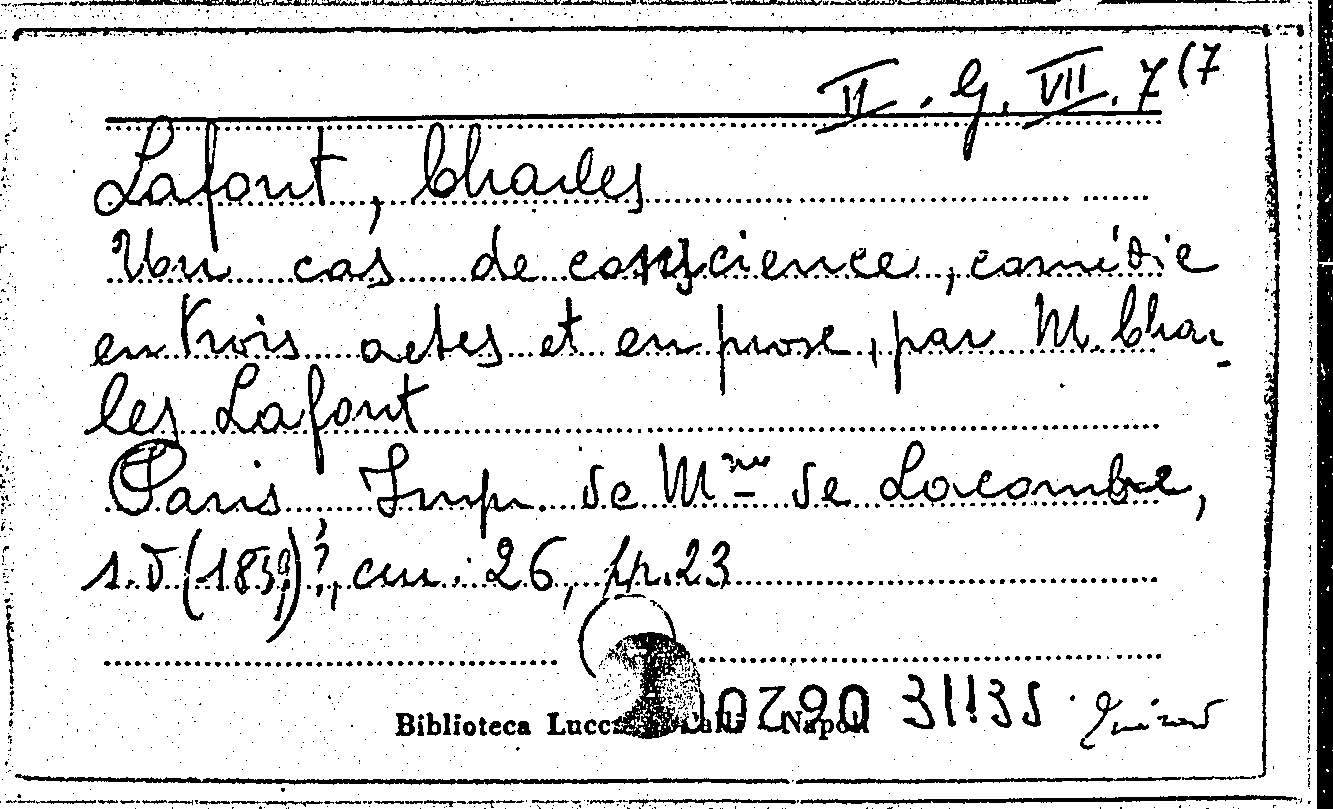 VI. G. VII. 7(7
Lafont, Charles
Un cas de conscience, comédie
en trois actes et en prose, par M. Char-
les Lafont
Paris Imp. de Mme de Lacombe,
s.d (1839)?, cm. 26, pp. 23
Biblioteca Lucchesi Palli Napoli
31135